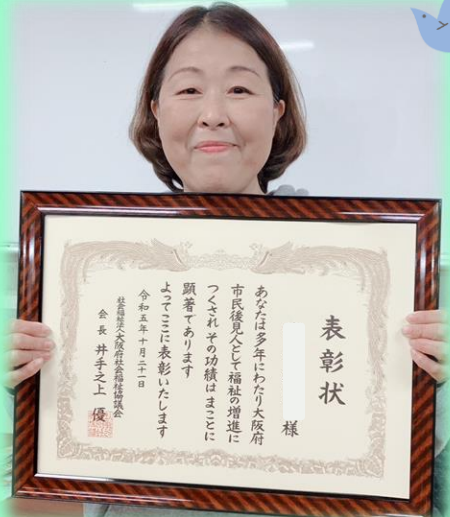 表彰状
様
あなたは多年にわたり大阪府
市民後見人として福祉の増進に
つくされ その功績は まことに
顕著であります
よってここに表彰いたします
令和五年十月二十一日
社会福祉法人大阪府社会福祉協議会
会長 井手之上 優